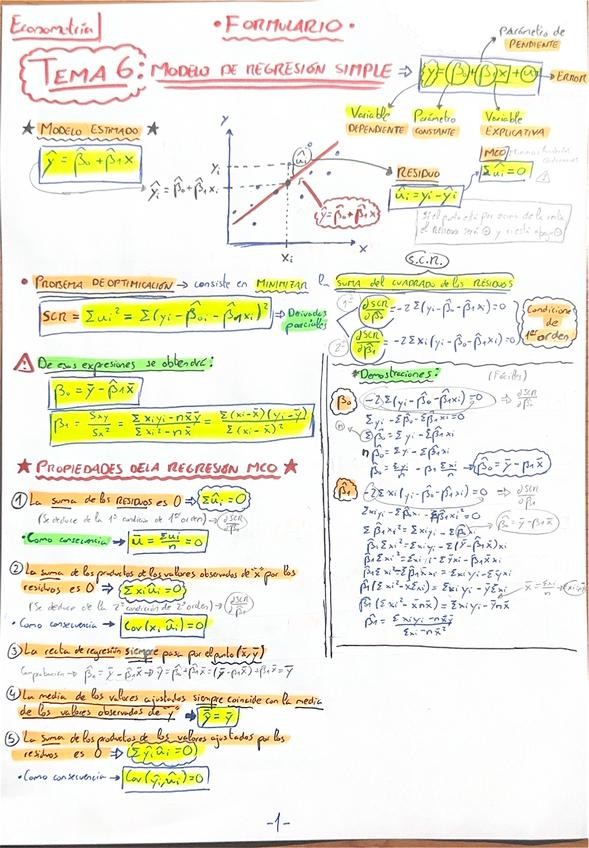 Econometría
• FORMULARIO •
TEMA 6: MODELO DE REGRESIÓN SIMPLE ⇒ y = β₀ + β₁x + u → ERROR
Parámetro de PENDIENTE
Variable DEPENDIENTE
Parámetro CONSTANTE
Variable EXPLICATIVA
★ MODELO ESTIMADO ★
ŷ = β̂₀ + β̂₁x
y
yᵢ
ŷᵢ = β̂₀ + β̂₁xᵢ
ûᵢ
xᵢ
x
ŷ = β̂₀ + β̂₁x
RESIDUO
ûᵢ = yᵢ - ŷᵢ
MCO
Σûᵢ = 0
Si el punto está por encima de la recta
el residuo será ⊕ y si está abajo ⊖
S.C.R.
• PROBLEMA DE OPTIMICACIÓN → consiste en MINIMIZAR la SUMA del CUADRADO de los RESIDUOS
SCR = Σuᵢ² = Σ(yᵢ - β̂₀ᵢ - β̂₁xᵢ)² ⇒ Derivadas parciales
1ª ∂SCR/∂β̂₀ = -2Σ(yᵢ - β̂₀ - β̂₁xᵢ) = 0
2ª ∂SCR/∂β̂₁ = -2Σxᵢ(yᵢ - β̂₀ - β̂₁xᵢ) = 0
Condicione de 1er orden
⚠ De esas expresiones se obtendrá:
β₀ = ȳ - β̂₁x̄
β₁ = Sxy/Sx² = (Σxᵢyᵢ - nx̄ȳ)/(Σxᵢ² - nx̄) = Σ(xᵢ-x̄)(yᵢ-ȳ)/Σ(xᵢ-x̄)²
* Demostraciones: (Fáciles)
β̂₀ -2Σ(yᵢ - β̂₀ - β̂₁xᵢ) = 0 ⇒ ∂SCR/∂β̂₀
Σyᵢ - Σβ̂₀ - Σβ̂₁xᵢ = 0
n Σβ̂₀ = Σyᵢ - Σβ̂₁xᵢ
nβ̂₀ = Σyᵢ - Σβ̂₁xᵢ
β̂₀ = Σyᵢ/n - β₁ Σxᵢ/n → β̂₀ = ȳ - β₁x̄
β̂₁ -2Σxᵢ(yᵢ - β̂₀ - β̂₁xᵢ) = 0 → ∂SCR/∂β₁
Σxᵢyᵢ - Σβ̂₀xᵢ - Σβ̂₁xᵢ² = 0
Σβ̂₁xᵢ² = Σxᵢyᵢ - Σβ̂₀xᵢ
β̂₀ = ȳ - β₁x̄
β̂₁Σxᵢ² = Σxᵢyᵢ - Σ(ȳ - β̂₁x̄)xᵢ
β₁Σxᵢ² = Σxᵢyᵢ - Σȳxᵢ - β₁x̄xᵢ
β₁Σxᵢ² - Σβ₁x̄xᵢ = Σxᵢyᵢ - Σȳxᵢ
β̂₁(Σxᵢ² - x̄Σxᵢ) = Σxᵢyᵢ - ȳΣxᵢ
x̄ = Σxᵢ/n
β̂₁(Σxᵢ² - x̄nx̄) = Σxᵢyᵢ - ȳnx̄
β̂₁ = (Σxᵢyᵢ - nx̄ȳ)/(Σxᵢ - nx̄²)
★ PROPIEDADES DE LA REGRESIÓN MCO ★
① La suma de los RESIDUOS es 0 → Σûᵢ = 0
(Se deduce de la 1ª condición de 1er orden) → ∂SCR/∂β₀
• Como consecuencia → ū = Σuᵢ/n = 0
② La suma de los productos de los valores observados de "x" por los
residuos es 0 → Σxᵢûᵢ = 0
(Se deduce de la 2ª condición de 2º orden) → ∂SCR/∂β₁
• Como consecuencia → Cov(x, ûᵢ) = 0
③ La recta de regresión siempre pasa por el punto (x̄, ȳ)
Comprobación → β̂₀ = ȳ - β̂₁x̄ → ŷ = β̂₀ + β̂₁x̄ = (ȳ - β₁x̄) + β₁x̄ = ȳ
④ La media de los valores ajustados siempre coincide con la media
de los valores observados de "y" → ŷ̄ = ȳ
⑤ La suma de los productos de los valores ajustados por los
residuos es 0 ⇒ Σŷᵢûᵢ = 0
• Como consecuencia → Cov(ŷᵢ, ûᵢ) = 0
-1-